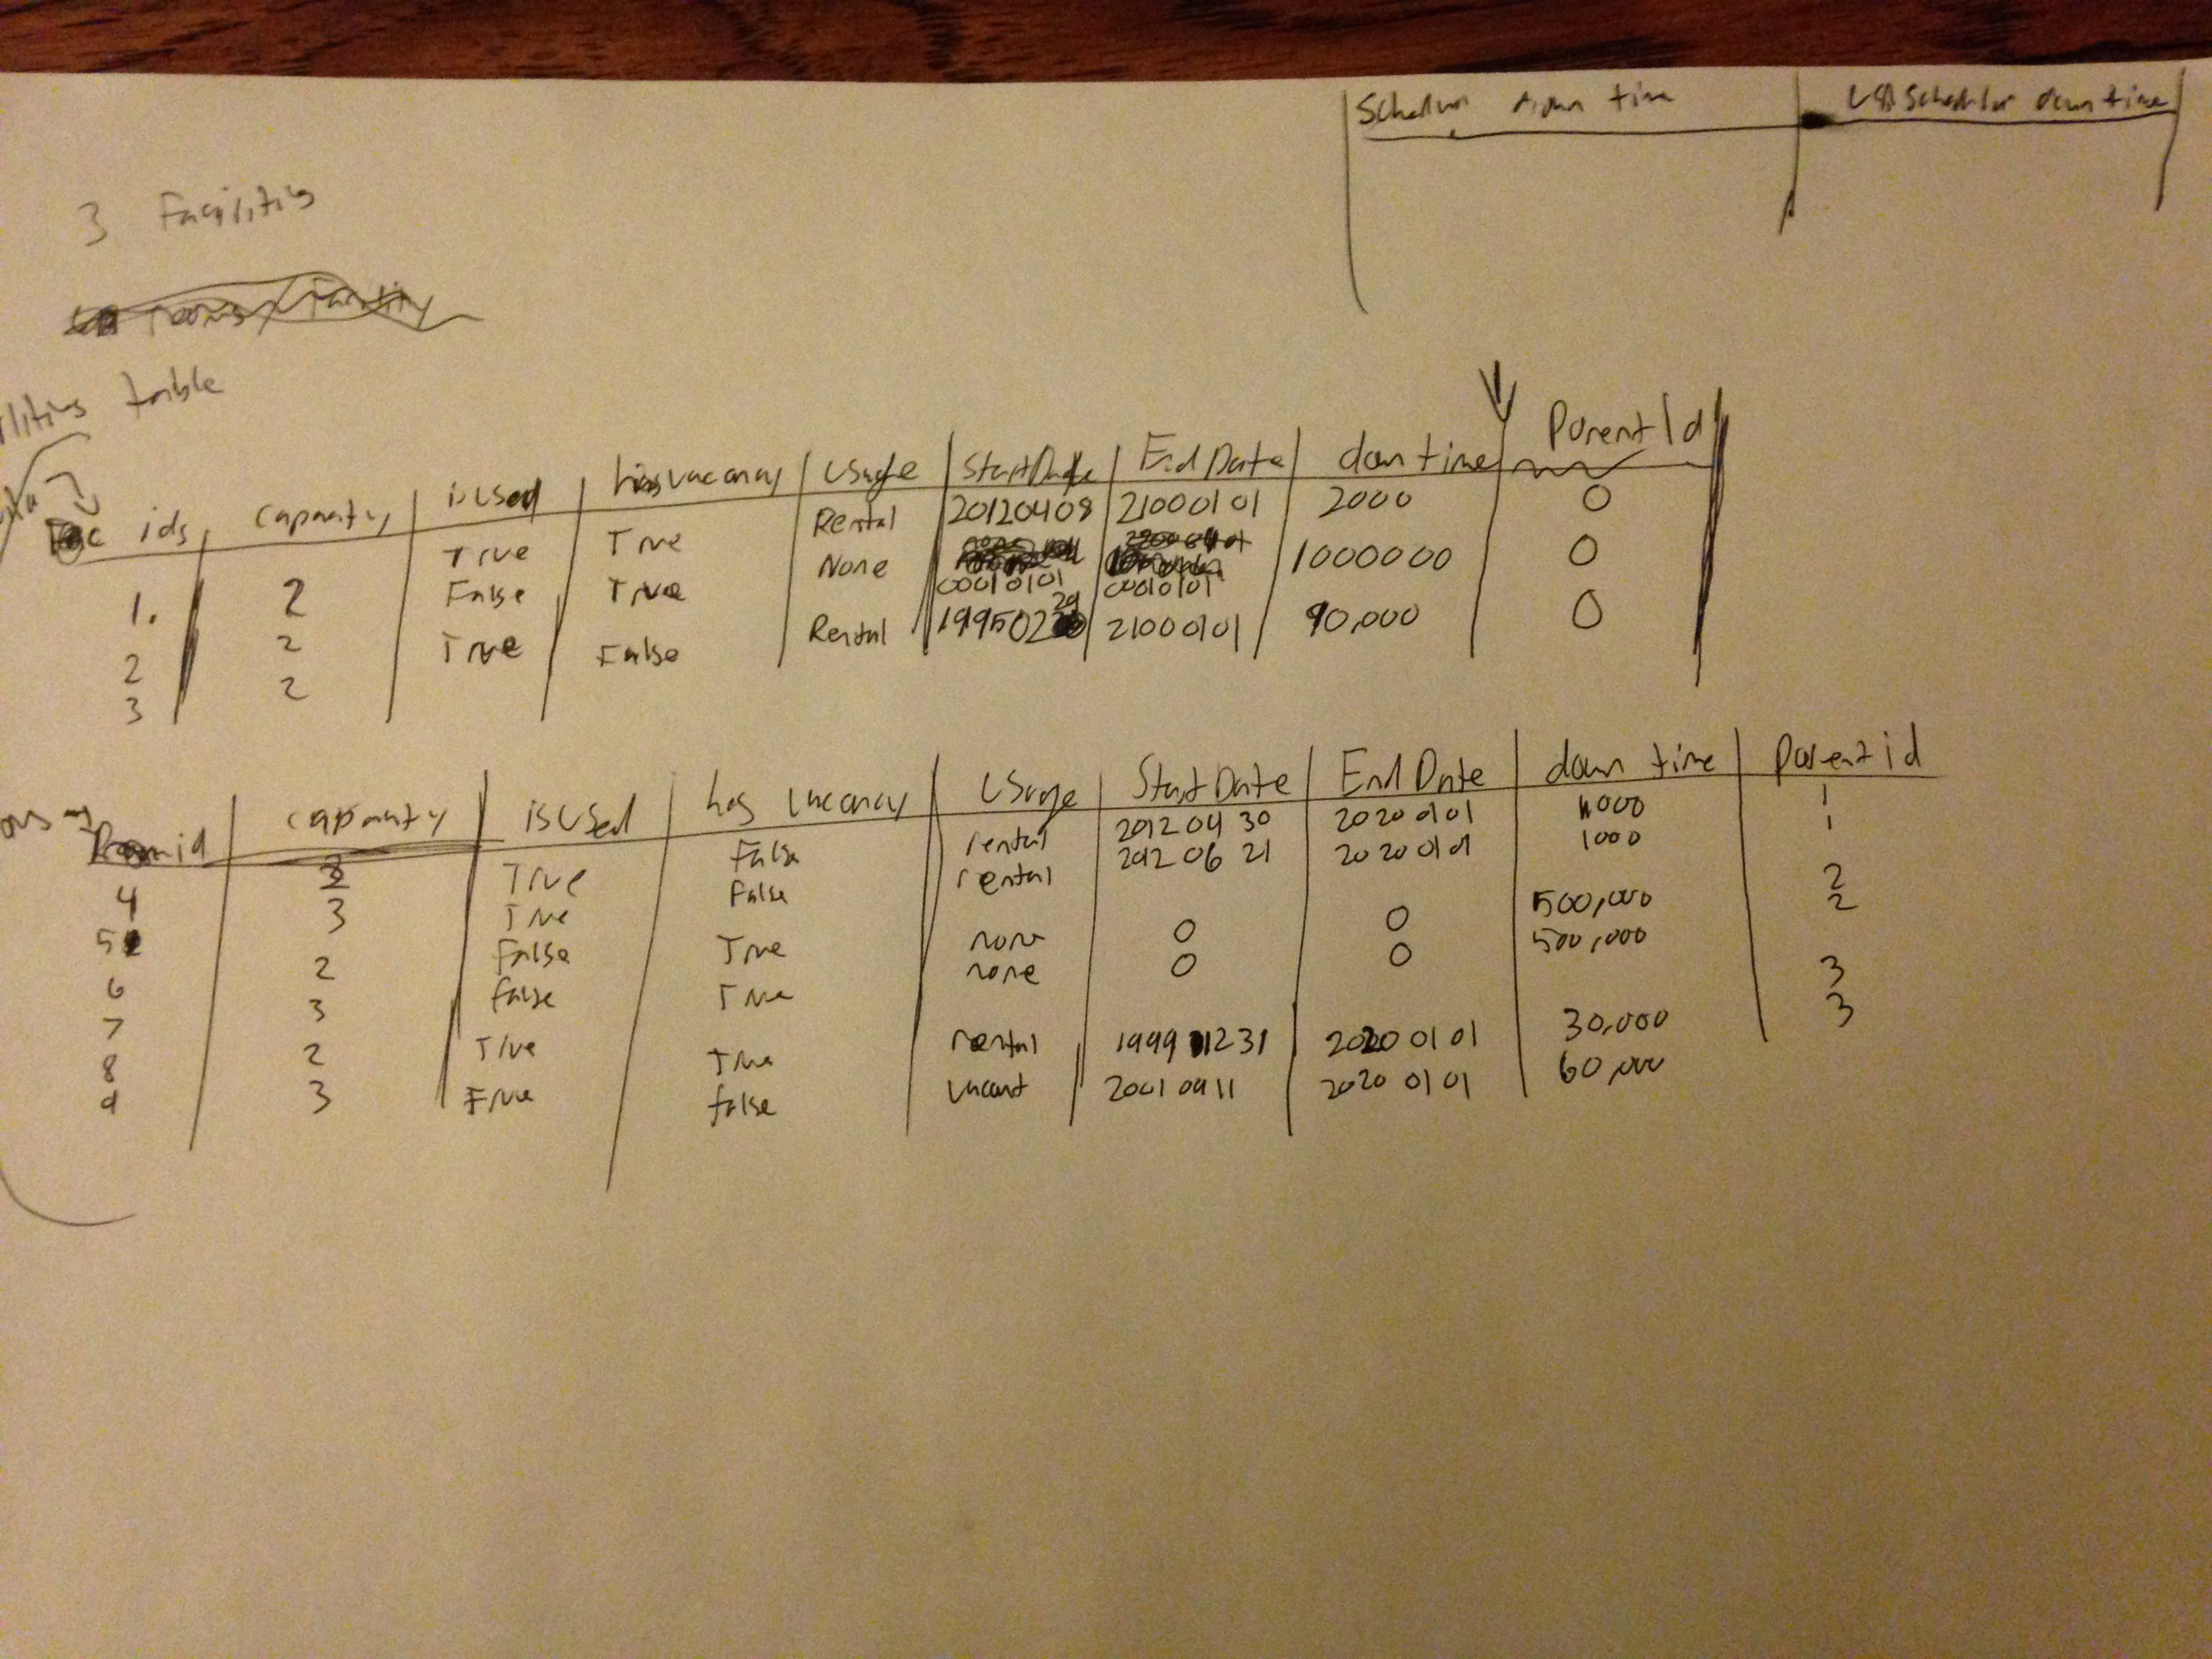 3 Facilities
Schedule down time | UnScheduled down time
table
ids | capacity | isUsed | hasvacancy | Usage | StartDate | EndDate | down time | ParentId
1. 2 True True Rental 20120408 21000101 2000 0
2 2 False True None 00010101 00010101 1000000 0
3 2 True False Rental 19950224 21000101 90,000 0
Roomid | capacity | isUsed | has vacancy | Usage | Start Date | End Date | down time | Parent id
4 2 True False rental 2012 04 30 2020 01 01 1000 1
5 3 True False rental 2012 06 21 2020 01 01 1000 1
6 2 False True none 0 0 500,000 2
7 3 False True none 0 0 500,000 2
8 2 True True rental 1999 12 31 2020 01 01 30,000 3
9 3 True False vacant 2001 0411 2020 01 01 60,000 3